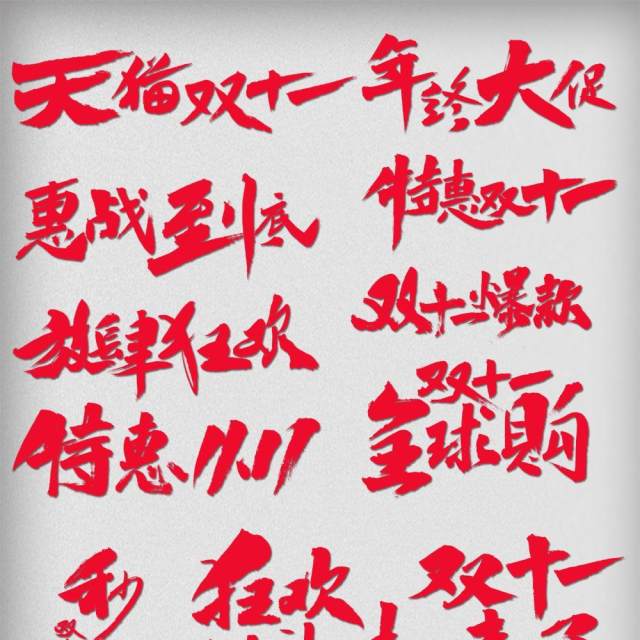 天猫双十一
年终大促
惠战到底
特惠双十一
放肆狂欢
双十一爆款
特惠11.11
双十一
全球購
秒
双
狂欢
双十一